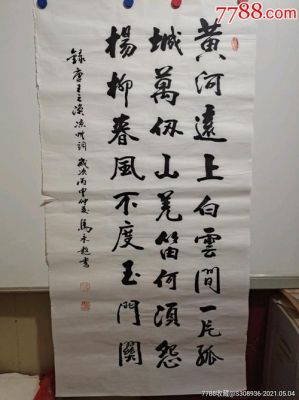 7788.com
黄河遠上白雲間一片孤
城萬仞山羌笛何須怨
楊柳春風不度玉門關
錄唐王之渙涼州詞 歲次丙申仲夏 馬永超書
7788收藏@S308936-2021.05.04